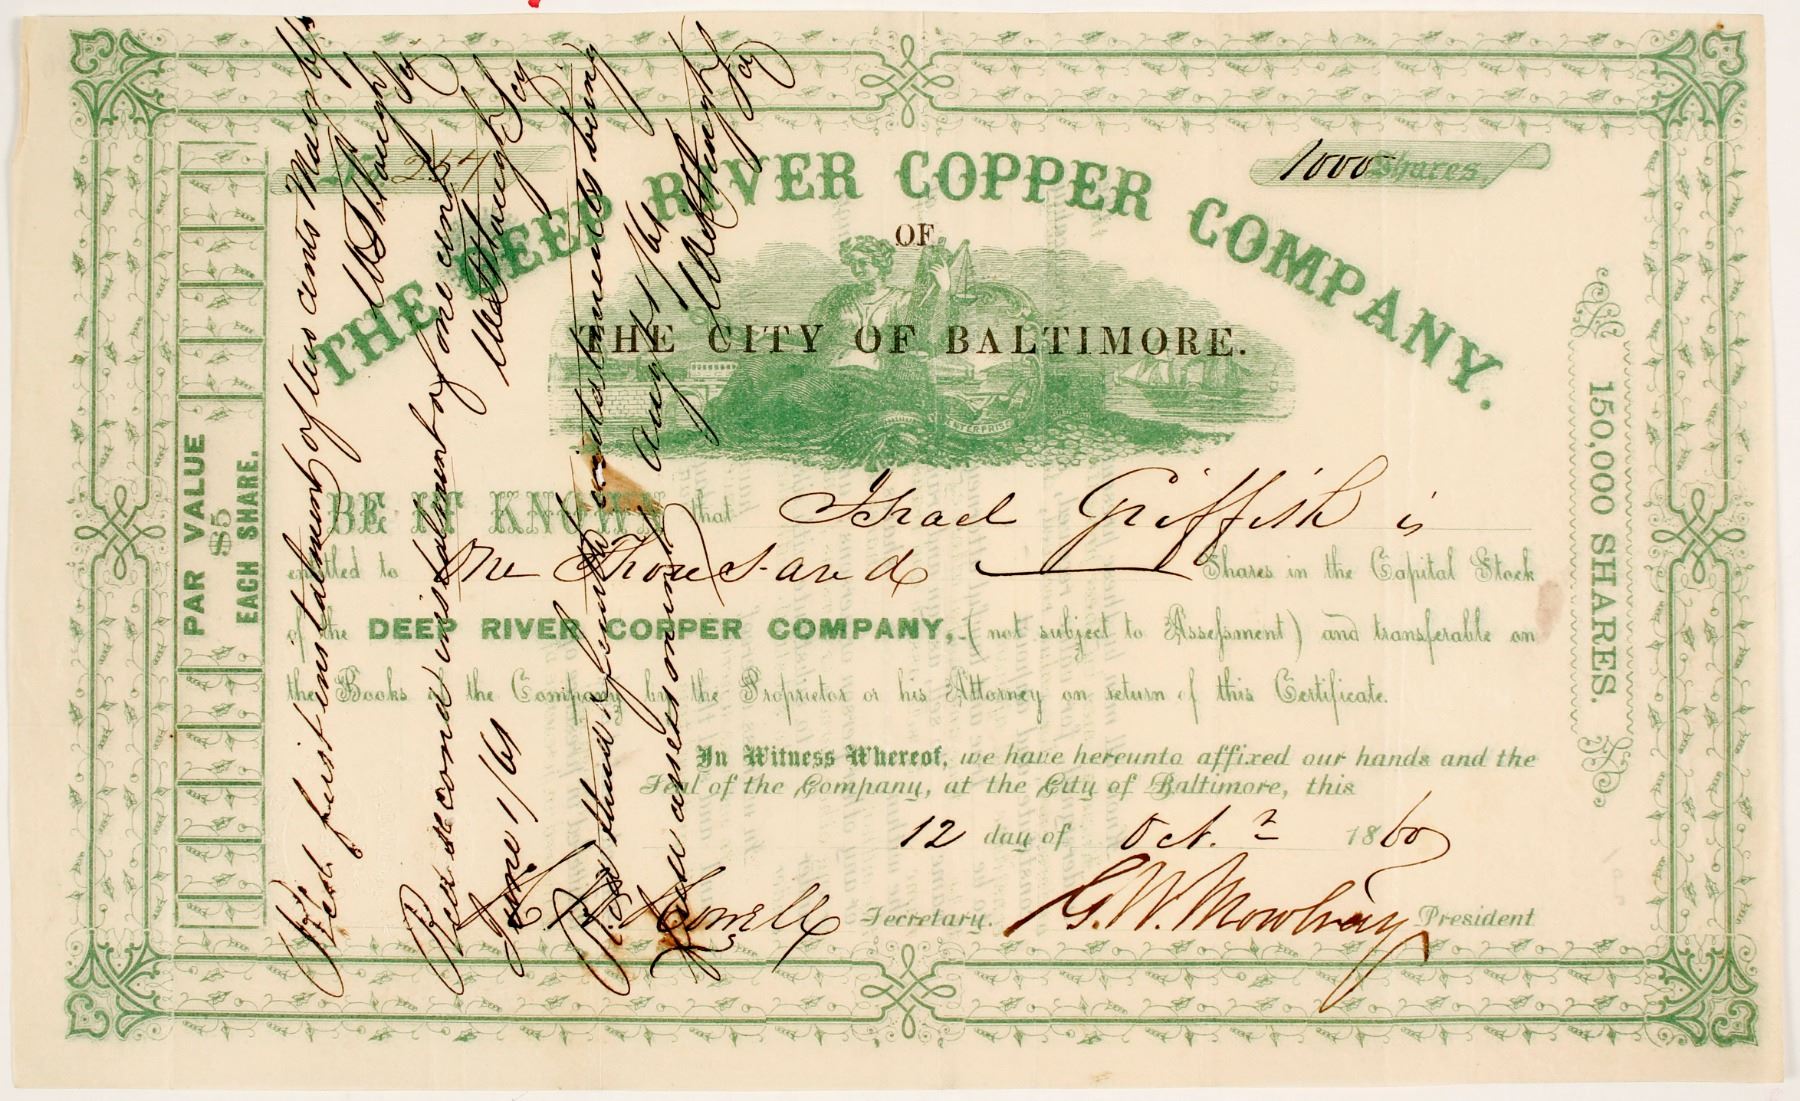 1000 Shares
THE DEEP RIVER COPPER COMPANY.
OF
THE CITY OF BALTIMORE.
ENTERPRISE
PAR VALUE
$5
EACH SHARE.
150,000 SHARES.
BE IT KNOWN that Israel Griffith is
entitled to One Thousand Shares in the Capital Stock
of the DEEP RIVER COPPER COMPANY, (not subject to Assessment) and transferable on
the Books of the Company by the Proprietor or his Attorney on return of this Certificate.
In Witness Whereof, we have hereunto affixed our hands and the
Seal of the Company, at the City of Baltimore, this
12 day of Oct. 1860
Secretary. G. W. Mowbray President
first instalment of two cents
second instalment of one cent
June 1/61
third & fourth instalments being
assessment Augt 1/61